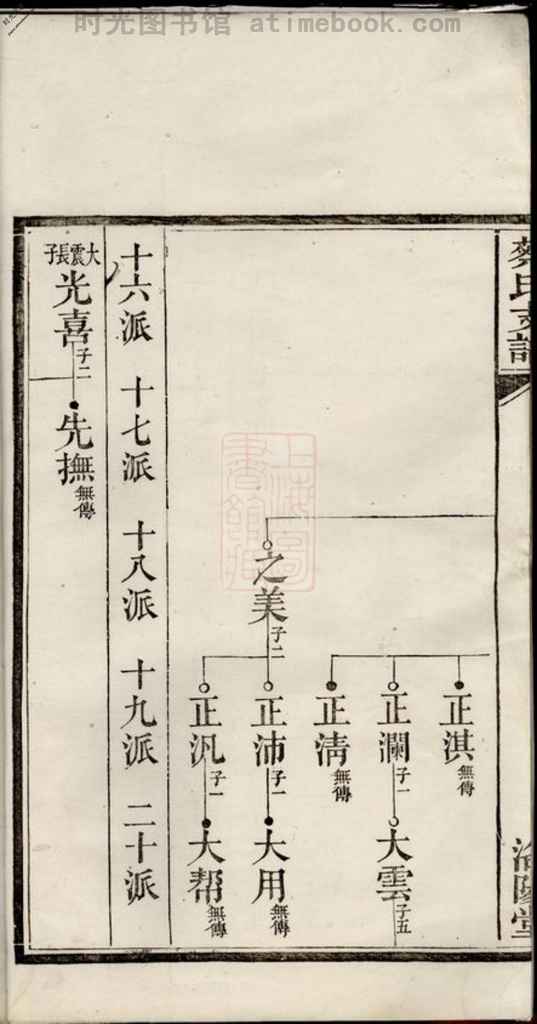 时光图书馆 atimebook.com
蔡氏支譜
濟陽堂
之美 子二
正淇 無傳
正瀾 子一
正淸 無傳
正沛 子一
正汎 子一
大雲 子五
大用 無傳
大帮 無傳
十六派 十七派 十八派 十九派 二十派
大震長子
光喜 子二
先撫 無傳
上海圖書館藏